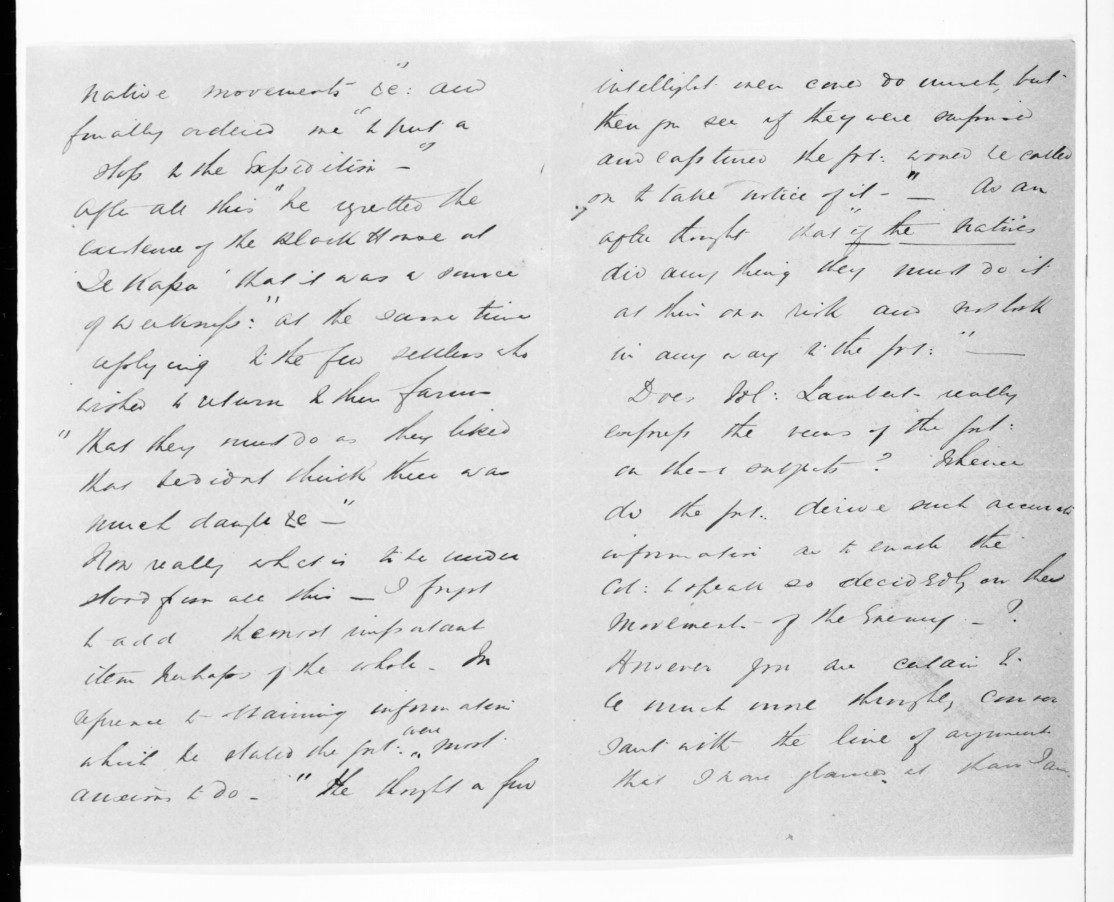 native movements &c: and
finally ordered me "to put a
stop to the Expedition - "
After all this "he regretted the
existence of the Block House at
Te Kapa' that it was a source
of weakness:" at the same time
applying to the few settlers who
wished to return to their farms
"that they must do as they liked
that he didnt think there was
much danger &c - "
Now really what is to be under
stood from all this - I forgot
to add the most important
item perhaps of the whole - In
reference to obtaining information
which he stated the govt: were most
anxious to do - " He thought a few
intelligent men could do much, but
then you see if they were surprised
and captured the govt: would be called
on to take notice of it - " - As an
after thought that "if the natives
did any thing they must do it
at their own risk and not look
in any way to the govt: " -
Does Col: Lambert really
express the views of the govt:
on these subjects ? Whence
do the govt: derive such accurate
information as to enable the
Col: to speak so decidedly on the
Movements of the Enemy - ?
However you are certain to
be much more thoroughly conver
sant with the line of argument
that I have glanced at than I am.